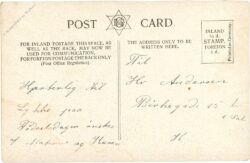 POST CARD
FOR INLAND POSTAGE THIS SPACE, AS
WELL AS THE BACK, MAY NOW BE
USED FOR COMMUNICATION.
FOR FOREIGN POSTAGE THE BACK ONLY
(Post Office Regulation).
THE ADDRESS ONLY TO BE
WRITTEN HERE.
INLAND
½ d.
STAMP
FOREIGN
1 d.
Hjertelig
Lykke paa
Fødselsdagen ønskes
Til
Hr Andersen
15